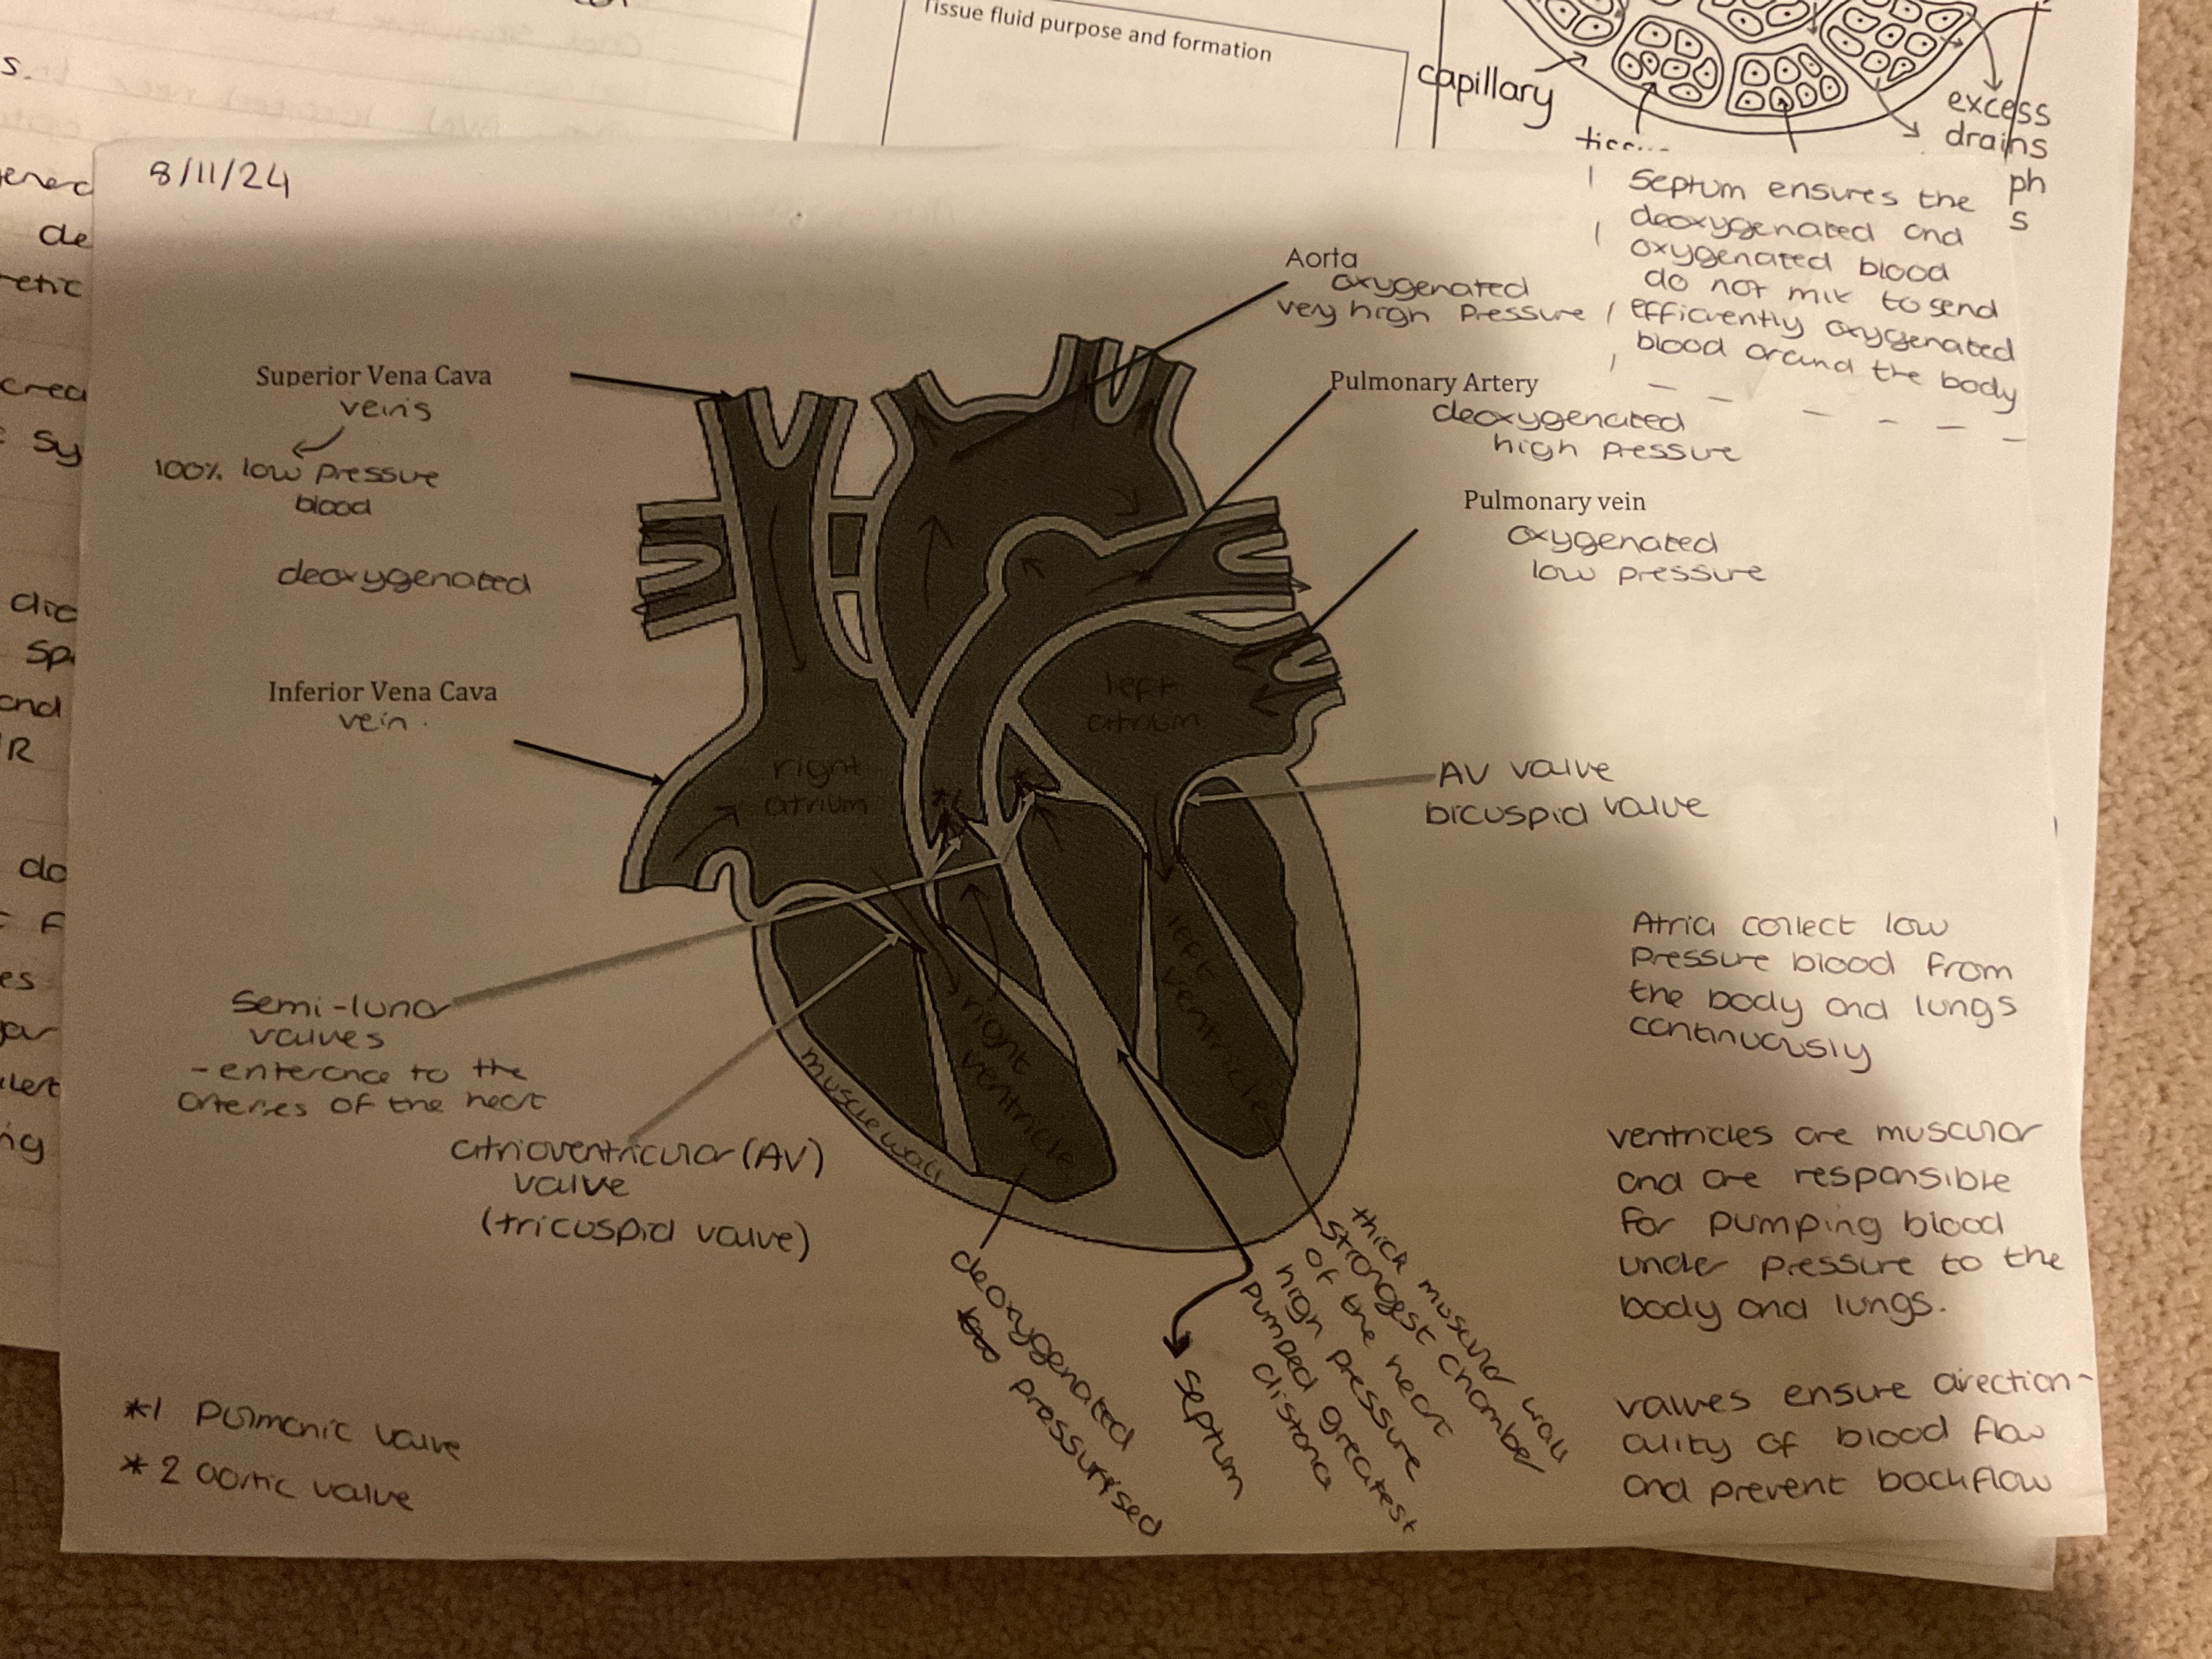 Tissue fluid purpose and formation
capillary
excess
drains
ph
s
s.
de
retic
crea
sy
dic
and
R
do
F
es
ng
8/11/24
Septum ensures the
deoxygenated and
oxygenated blood
do not mix to send
efficiently oxygenated
blood around the body
Aorta
oxygenated
very high pressure
Superior Vena Cava
veins
100% low pressure
blood
deoxygenated
Pulmonary Artery
deoxygenated
high pressure
Pulmonary vein
oxygenated
low pressure
Inferior Vena Cava
vein.
left
atrium
right
atrium
*1
*2
AV valve
bicuspid valve
left
ventricles
right
ventricle
muscle wall
Semi-lunar
valves
- enterance to the
arteries of the heart
atrioventricular (AV)
valve
(tricuspid valve)
Atria collect low
pressure blood from
the body and lungs
continuously
ventricles are muscular
and are responsible
for pumping blood
under pressure to the
body and lungs.
valves ensure direction-
ality of blood flow
and prevent backflow
deoxygenated
pressurised
septum
thick muscular wall
strongest chamber
of the heart
high pressure
pumped greatest
distance
*1 Pulmonic valve
*2 aortic valve